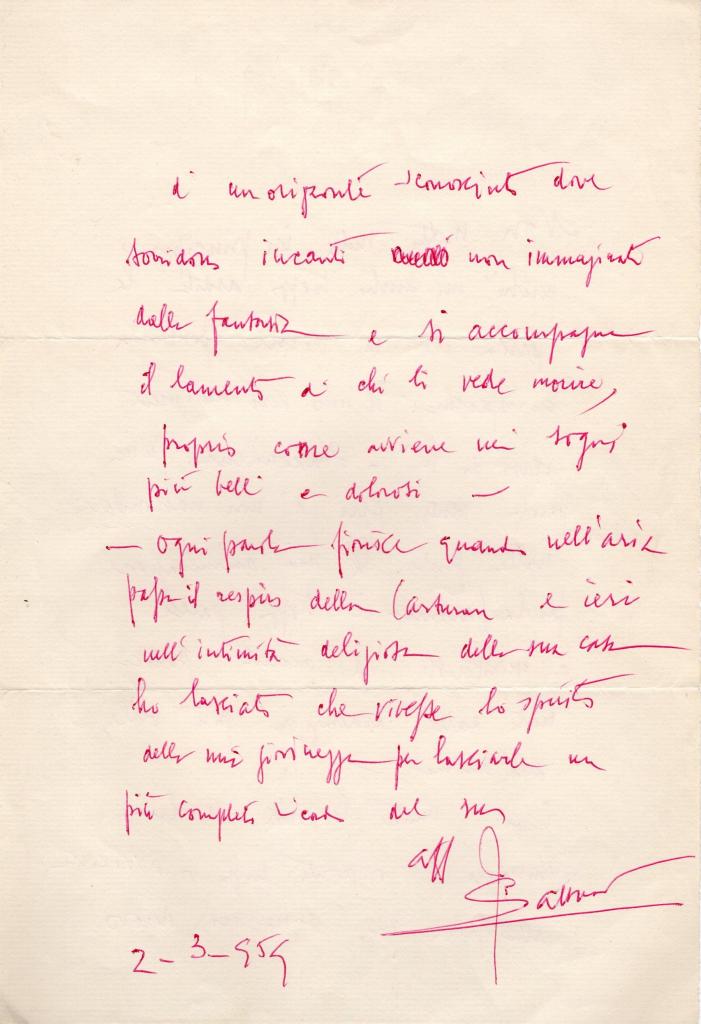 di un orizzonte sconosciuto dove
sorridono incanti non immaginati
dalla fantasia e si accompagna
il lamento di chi li vede morire,
proprio come avviene nei sogni
più belli e dolorosi —
— Ogni parola finisce quando nell'aria
passa il respiro della e ieri
nell'intimità deliziosa della sua casa
ho lasciato che vivesse lo spirito
della mia giovinezza per lasciarle un
più completo ricordo del suo
aff
2-3-959